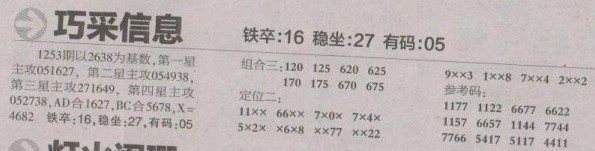 巧采信息
铁卒:16 稳坐:27 有码:05
1253期以2638为基数,第一星
主攻051627，第二星主攻054938,
第三星主攻271649，第四星主攻
052738,AD合1627,BC合5678,X=
4682 铁卒:16,稳坐:27,有码:05
组合三:120 125 620 625
170 175 670 675
定位二:
11×× 66×× 7×0× 7×4×
5×2× ×6×8 ××77 ××22
9××3 1××8 7××4 2××2
参考码:
1177 1122 6677 6622
1157 6657 1144 7744
7766 5417 5117 4411